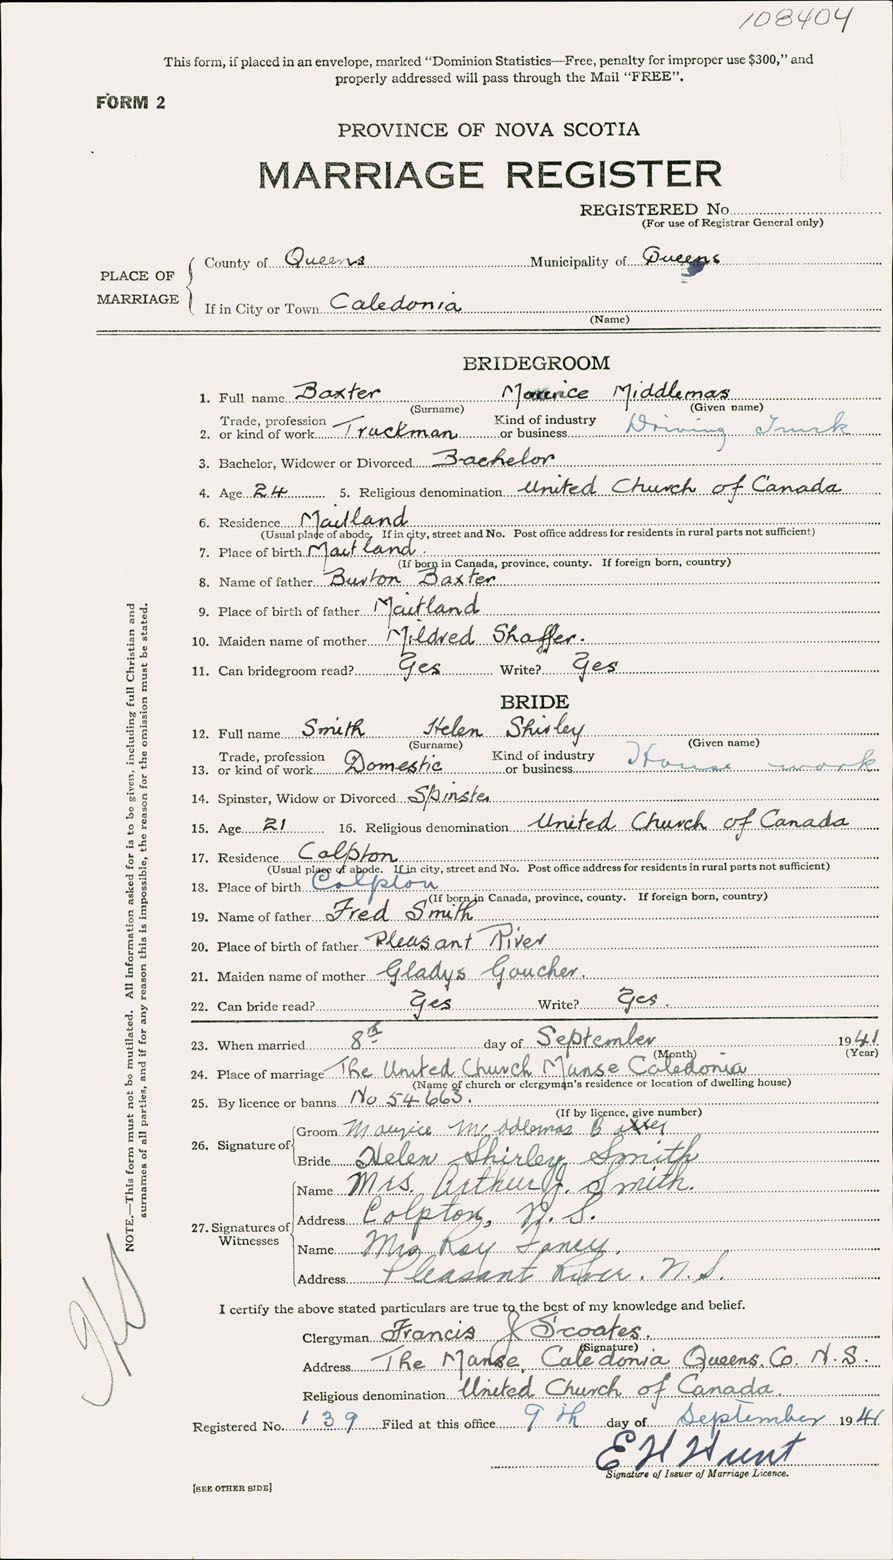 108404
This form, if placed in an envelope, marked "Dominion Statistics—Free, penalty for improper use $300," and
properly addressed will pass through the Mail "FREE".
FORM 2
PROVINCE OF NOVA SCOTIA
MARRIAGE REGISTER
REGISTERED No.
(For use of Registrar General only)
PLACE OF MARRIAGE
County of Queens Municipality of Queens
If in City or Town Caledonia
(Name)
BRIDEGROOM
1. Full name Baxter Maurice Middlemas
(Surname) (Given name)
2. Trade, profession or kind of work Truckman Kind of industry or business Driving Truck
3. Bachelor, Widower or Divorced Bachelor
4. Age 24 5. Religious denomination United Church of Canada
6. Residence Maitland
(Usual place of abode. If in city, street and No. Post office address for residents in rural parts not sufficient)
7. Place of birth Maitland.
(If born in Canada, province, county. If foreign born, country)
8. Name of father Burton Baxter
9. Place of birth of father Maitland
10. Maiden name of mother Mildred Shaffer.
11. Can bridegroom read? Yes Write? Yes
BRIDE
12. Full name Smith Helen Shirley
(Surname) (Given name)
13. Trade, profession or kind of work Domestic Kind of industry or business House work
14. Spinster, Widow or Divorced Spinster
15. Age 21 16. Religious denomination United Church of Canada
17. Residence Colpton
(Usual place of abode. If in city, street and No. Post office address for residents in rural parts not sufficient)
18. Place of birth Colpton
(If born in Canada, province, county. If foreign born, country)
19. Name of father Fred Smith
20. Place of birth of father Pleasant River
21. Maiden name of mother Gladys Goucher.
22. Can bride read? Yes Write? Yes.
23. When married 8th day of September 1941
(Month) (Year)
24. Place of marriage The United Church Manse Caledonia
(Name of church or clergyman's residence or location of dwelling house)
25. By licence or banns No 54663.
(If by licence, give number)
26. Signature of Groom Maurice Middlemas Baxter
Bride Helen Shirley Smith
27. Signatures of Witnesses
Name Mrs. Arthur J. Smith.
Address Colpton, N.S.
Name Mrs Roy Faney.
Address Pleasant River. N.S.
I certify the above stated particulars are true to the best of my knowledge and belief.
Clergyman Francis J Scoates.
(Signature)
Address The Manse, Caledonia Queens. Co. N.S.
Religious denomination United Church of Canada.
Registered No. 139 Filed at this office 9th day of September 1941
E H Hunt
Signature of Issuer of Marriage Licence.
[SEE OTHER SIDE]
NOTE.—This form must not be mutilated. All information asked for is to be given, including full Christian and
surnames of all parties, and if for any reason this is impossible, the reason for the omission must be stated.